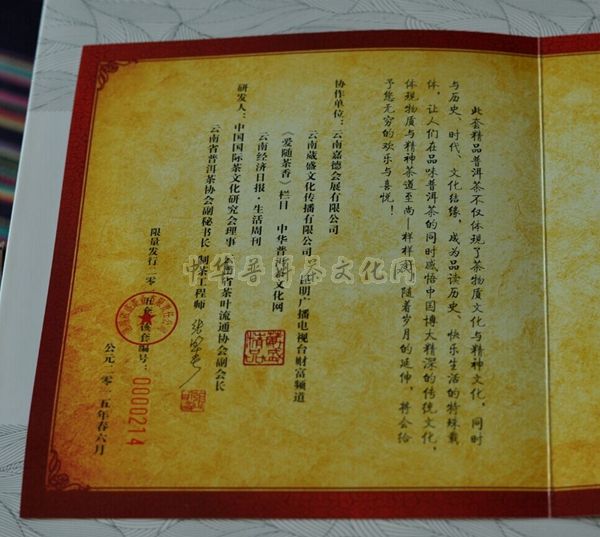 此套精品普洱茶不仅体现了茶物质文化与精神文化，同时
与历史、时代、文化结缘，成为品读历史、快乐生活的特殊载
体，让人们在品味普洱茶的同时感悟中国博大精深的传统文化，
体现物质与精神茶道至尚—样样
随着岁月的延伸，将会给
予您无穷的欢乐与喜悦！
协作单位：云南嘉德会展有限公司
云南葳盛文化传播有限公司 昆明广播电视台财富频道
《爱随茶香》栏目 中华普洱茶文化网
云南经济日报·生活周刊
研发人：中国国际茶文化研究会理事 云南省茶叶流通协会副会长
云南省普洱茶协会副秘书长 制茶工程师
限量发行二〇一五套 该套编号：0000214
公元二〇一五年春六月
葳盛精品
中华普洱茶文化网